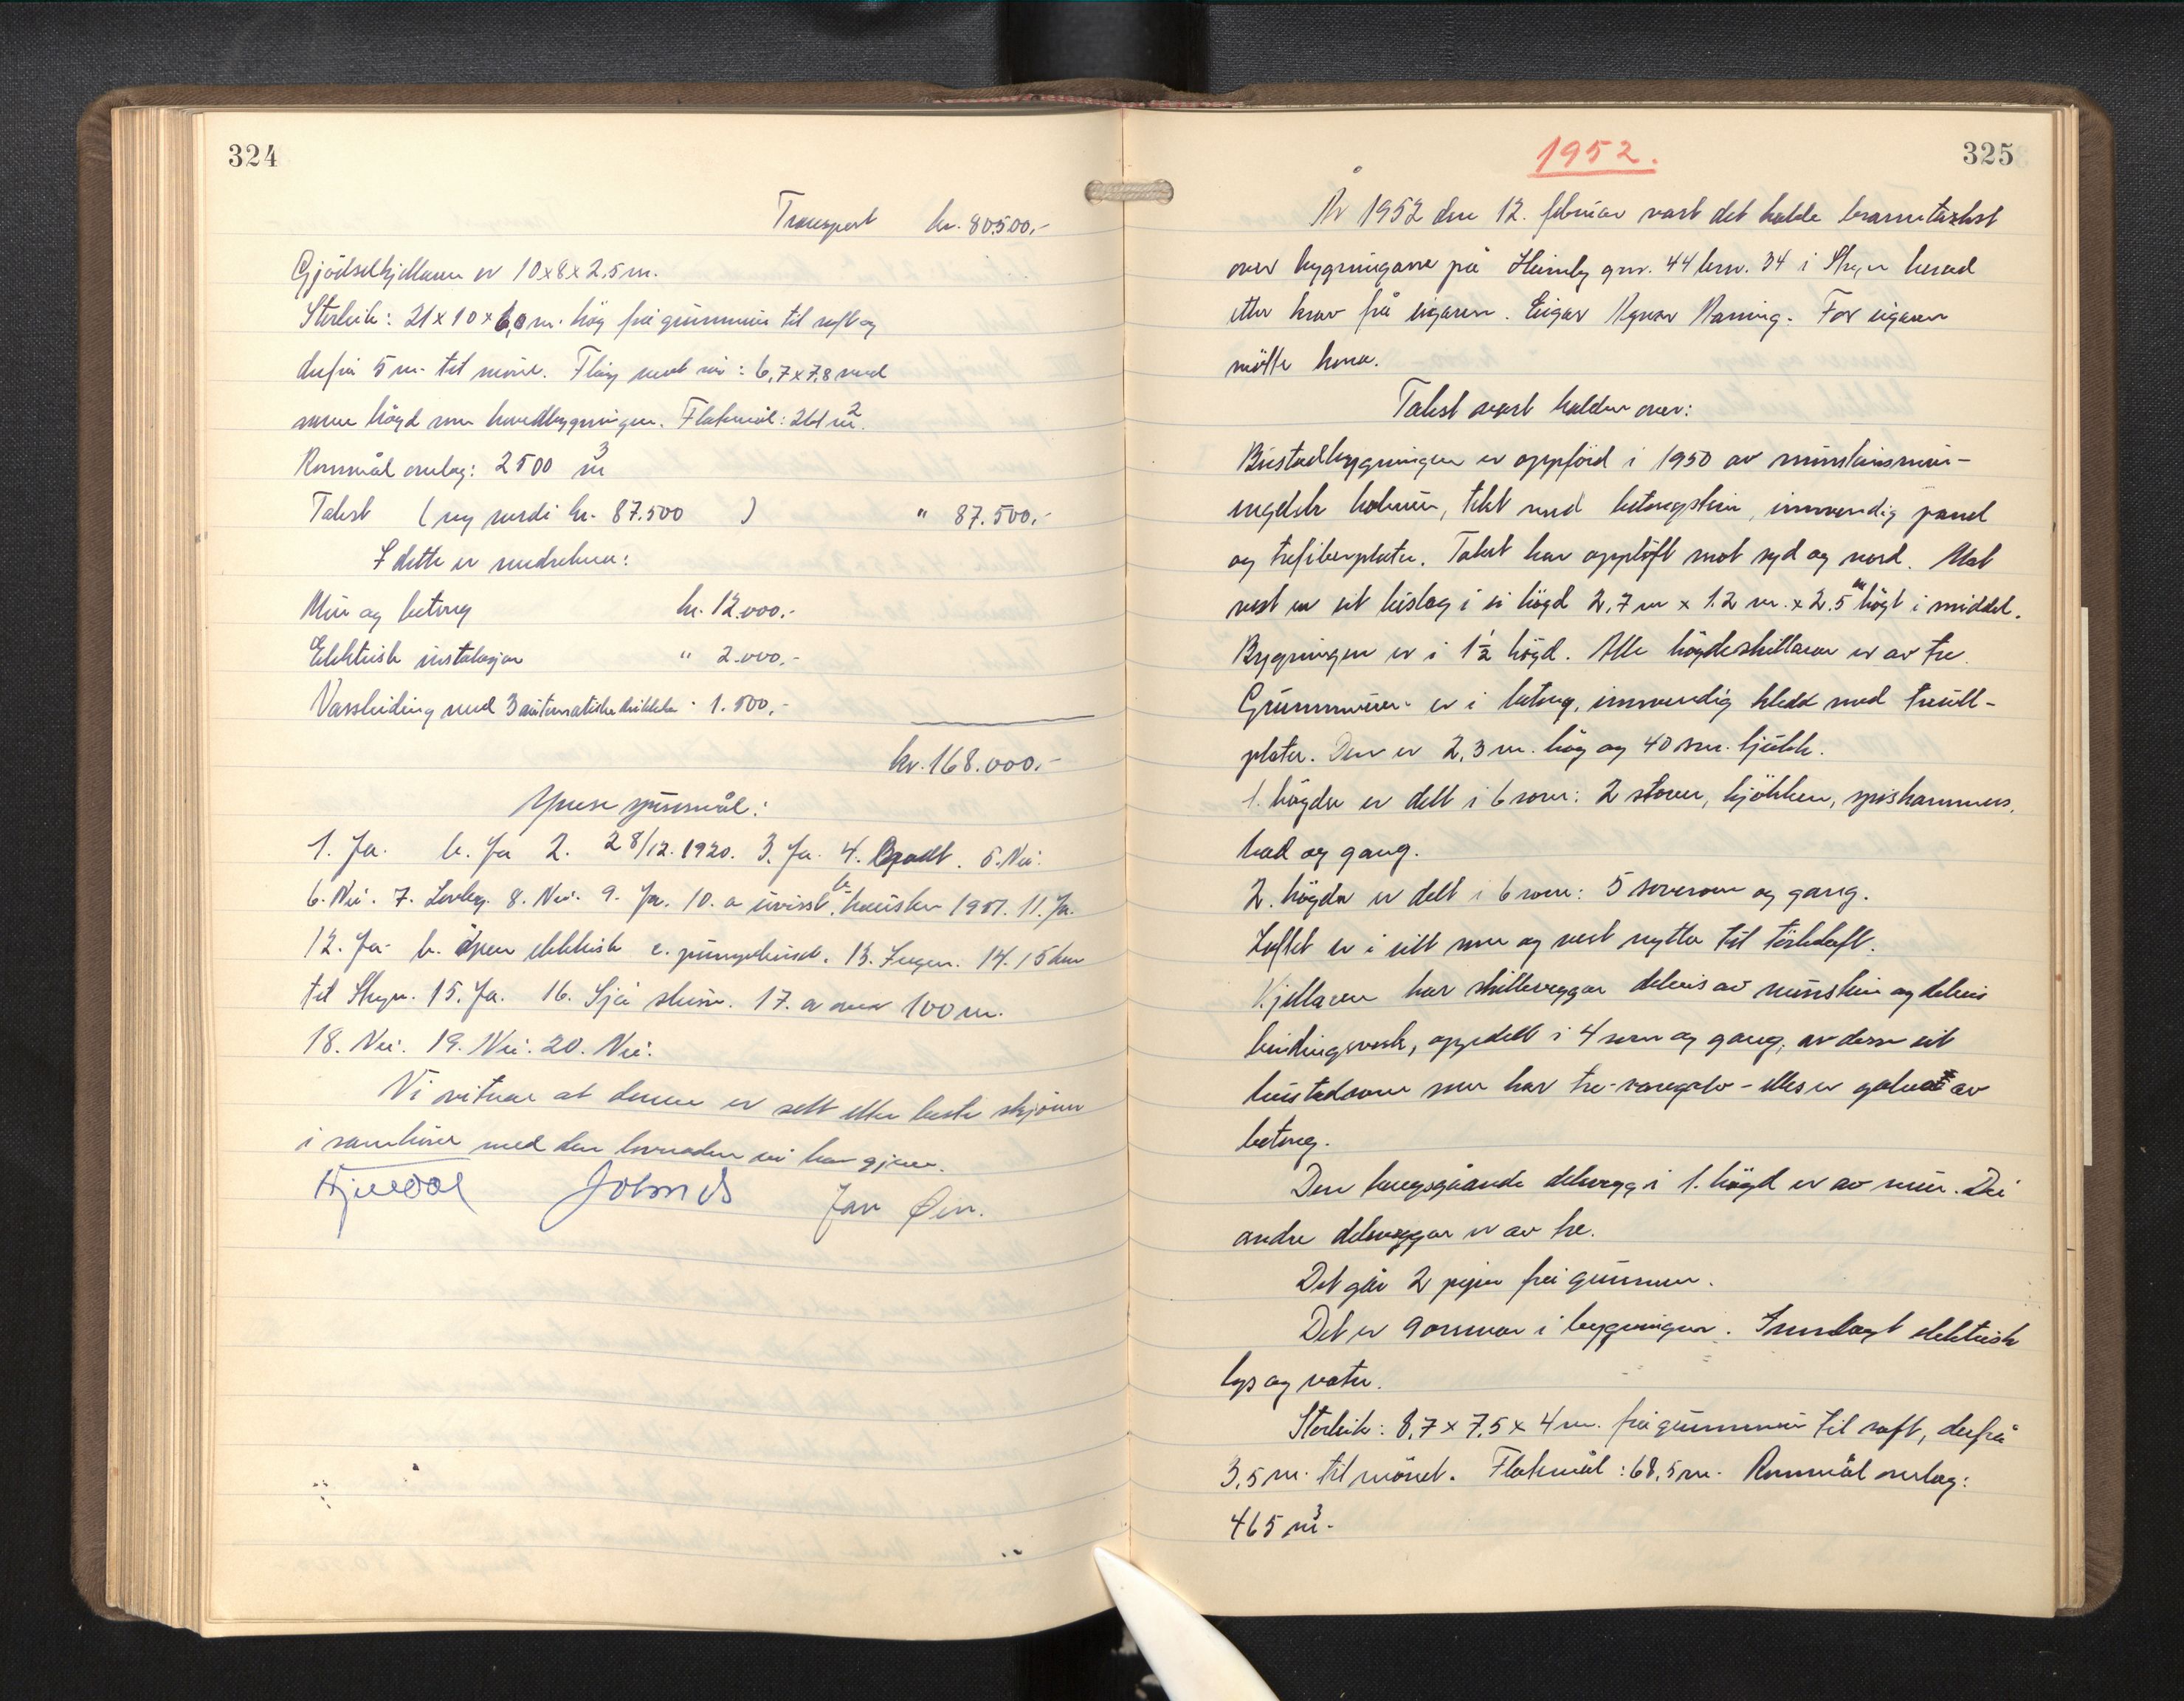 324
Transport kr. 80500,-
Gjödselkjellaren er 10x8x2,5 m.
Storleik: 21x10x6,0 m. høg frå grunnmur til raft og
derfrå 5 m. til møne. Fløy mot : 6,7x7,8 med
same högd som hovedbygningen. Flatemål: 261 m².
Rommål omlag: 2500 m³
Takst (ny verdi kr. 87.500 ) " 87.500,-
I dette er medrekna:
Mur og betong kr. 12.000,-
Elektrisk instalasjon " 2.000,-
Vassleiding med 3 automatiske drikkekar " 1.500,-
kr. 168.000,-
Ymse spursmål:
1. Ja. b. Ja 2. 28/12. 1920. 3. Ja. 4. Godt. 5. Nei.
6. Nei. 7. Lovleg. 8. Nei. 9. Ja. 10. a uvisst b. hausten 1951. 11. Ja.
12. Ja. b. open elektrisk c. 13. Ingen. 14. 15 km
til Stryn. 15. Ja. 16. Sjå skism. 17. a over 100 m.
18. Nei. 19. Nei. 20. Nei.
Vi vitnar at denne er sett etter beste skjönn
i samhöve med den lovnaden vi har gjeve.
Jan Øen.
1952.
325
År 1952 den 12. februar vart det halde branntakst
over bygningane på Heimly gnr. 44 brn. 34 i Stryn herad
etter krav frå eigaren. Eigar Ragnar Rauning. For eigaren
møtte kona.
Takst vart halden over:
Bustadbygningen er oppförd i 1950 av mursteinsmur-
tekt med betongstein, innvendig panel
og trefiberplater. Taket har opplöft mot syd og nord. Mot
vest er eit bislag i ei högd 2,7 m x 1.2 m. x 2.5 m högt i middel.
Bygningen er i 1½ högd. Alle högdeskillarar er av tre.
Grunnmuren er i betong, innvendig kledd med treull-
plater. Den er 2,3 m. høg og 40 sm. tjukk.
1. högda er delt i 6 rom: 2 stover, kjökken, spiskammers,
bad og gang.
2. högda er delt i 6 rom: 5 soverom og gang.
Loftet er i eitt rom og vert nytta til törkeloft.
Kjellaren har skilleveggar delvis av murstein og delvis
bindingsverk, oppdelt i 4 rom og gang, av desse eit
bustadrom som har tre-varegolv – elles er golvet av
betong.
Den langsgåande delvegg i 1. högd er av mur. Dei
andre delveggar er av tre.
Det går 2 piper frå grunnen.
Det er 9 omnar i bygningen. Innlagt elektrisk
lys og vatn.
Storleik: 8,7 x 7,5 x 4 m. frå grunnmur til raft, derfrå
3,5 m. til mönet. Flatemål: 68,5 m. Rommål omlag:
465 m³.